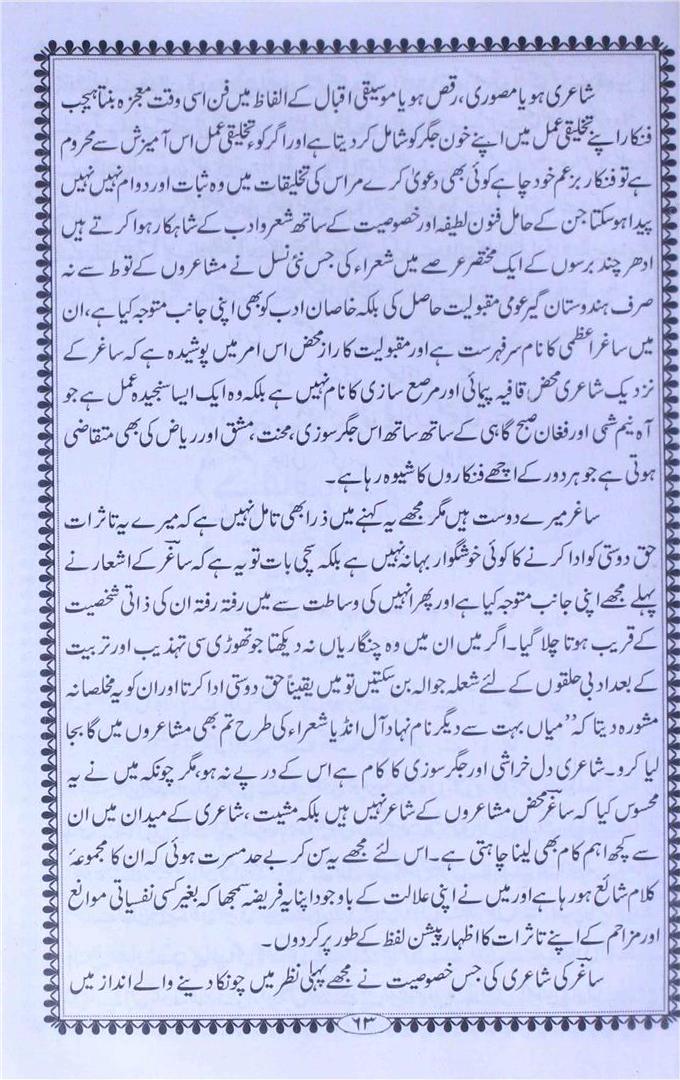 شاعری ہو یا مصوری، رقص ہو یا موسیقی اقبال کے الفاظ میں فن اسی وقت معجزہ بنتا ہیجب
فنکار اپنے تخلیقی عمل میں اپنے خون جگر کو شامل کر دیتا ہے اور اگر کوء تخلیقی عمل اس آمیزش سے محروم
ہے تو فنکار بزعم خود چاہے کوئی بھی دعویٰ کرے مر اس کی تخلیقات میں وہ ثبات اور دوام نہیں نہیں
پیدا ہو سکتا جن کے حامل فنون لطیفہ اور خصوصیت کے ساتھ شعر و ادب کے شاہکار ہوا کرتے ہیں
ادھر چند برسوں کے ایک مختصر عرصے میں شعراء کی جس نئی نسل نے مشاعروں کے توط سے نہ
صرف ہندوستان گیر عومی مقبولیت حاصل کی بلکہ خاصان ادب کو بھی اپنی جانب متوجہ کیا ہے، ان
میں ساغر اعظمی کا نام سر فہرست ہے اور مقبولیت کا راز محض اس امر میں پوشیدہ ہے کہ ساغر کے
نزدیک شاعری محض قافیہ پیمائی اور مرصع سازی کا نام نہیں ہے بلکہ وہ ایک ایسا سنجیدہ عمل ہے جو
آہ نیم شمی اور فغان صبح گاہی کے ساتھ ساتھ اس جگر سوزی، محنت، مشق اور ریاض کی بھی متقاضی
ہوتی ہے جو ہر دور کے اچھے فنکاروں کا شیوہ رہا ہے۔
ساغر میرے دوست ہیں مگر مجھے یہ کہنے میں ذرا بھی تامل نہیں ہے کہ میرے یہ تاثرات
حق دوستی کو ادا کرنے کا کوئی خوشگوار بہانہ نہیں ہے بلکہ سچی بات تو یہ ہے کہ ساغر کے اشعار نے
پہلے مجھے اپنی جانب متوجہ کیا ہے اور پھر انہیں کی وساطت سے میں رفتہ رفتہ ان کی ذاتی شخصیت
کے قریب ہوتا چلا گیا۔ اگر میں ان میں وہ چنگاریاں نہ دیکھتا جو تھوڑی سی تہذیب اور تربیت
کے بعد ادبی حلقوں کے لئے شعلہ جوالہ بن سکتیں تو میں یقیناً حق دوستی ادا کرتا اور ان کو یہ مخلصانہ
مشورہ دیتا کہ ”میاں بہت سے دیگر نام نہاد آل انڈیا شعراء کی طرح تم بھی مشاعروں میں گا بجا
لیا کرو۔ شاعری دل خراشی اور جگر سوزی کا کام ہے اس کے درپے نہ ہو، مگر چونکہ میں نے یہ
محسوس کیا کہ ساغر محض مشاعروں کے شاعر نہیں ہیں بلکہ مشیت، شاعری کے میدان میں ان
سے کچھ اہم کام بھی لینا چاہتی ہے۔ اس لئے مجھے یہ سن کر بے حد مسرت ہوئی کہ ان کا مجموعۂ
کلام شائع ہو رہا ہے اور میں نے اپنی علالت کے باوجود اپنا یہ فریضہ سمجھا کہ بغیر کسی نفسیاتی موانع
اور مزاحم کے اپنے تاثرات کا اظہار پیشن لفظ کے طور پر کر دوں۔
ساغر کی شاعری کی جس خصوصیت نے مجھے پہلی نظر میں چونکا دینے والے انداز میں
۶۳